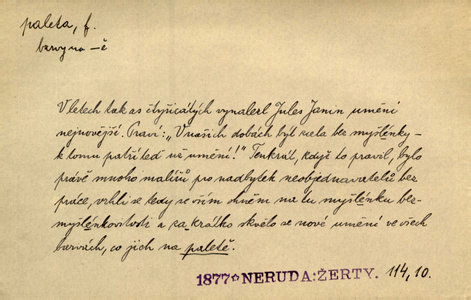 paleta, f.
barvy na -ě
V letech tak as čtyřicátých vynalezl Jules Janin umění
nejnovější. Praví: „V našich dobách být zcela bez myšlénky -
k tomu patří teď už umění!" Tenkrát, když to pravil, bylo
právě mnoho malířů pro nadbytek neobjednavatelů bez
práce, vrhli se tedy se vším ohněm na tu myšlénku bez-
myšlénkovitosti a za krátko skvělo se nové umění ve všech
barvách, co jich na paletě.
1877* NERUDA: ŽERTY. 114, 10.